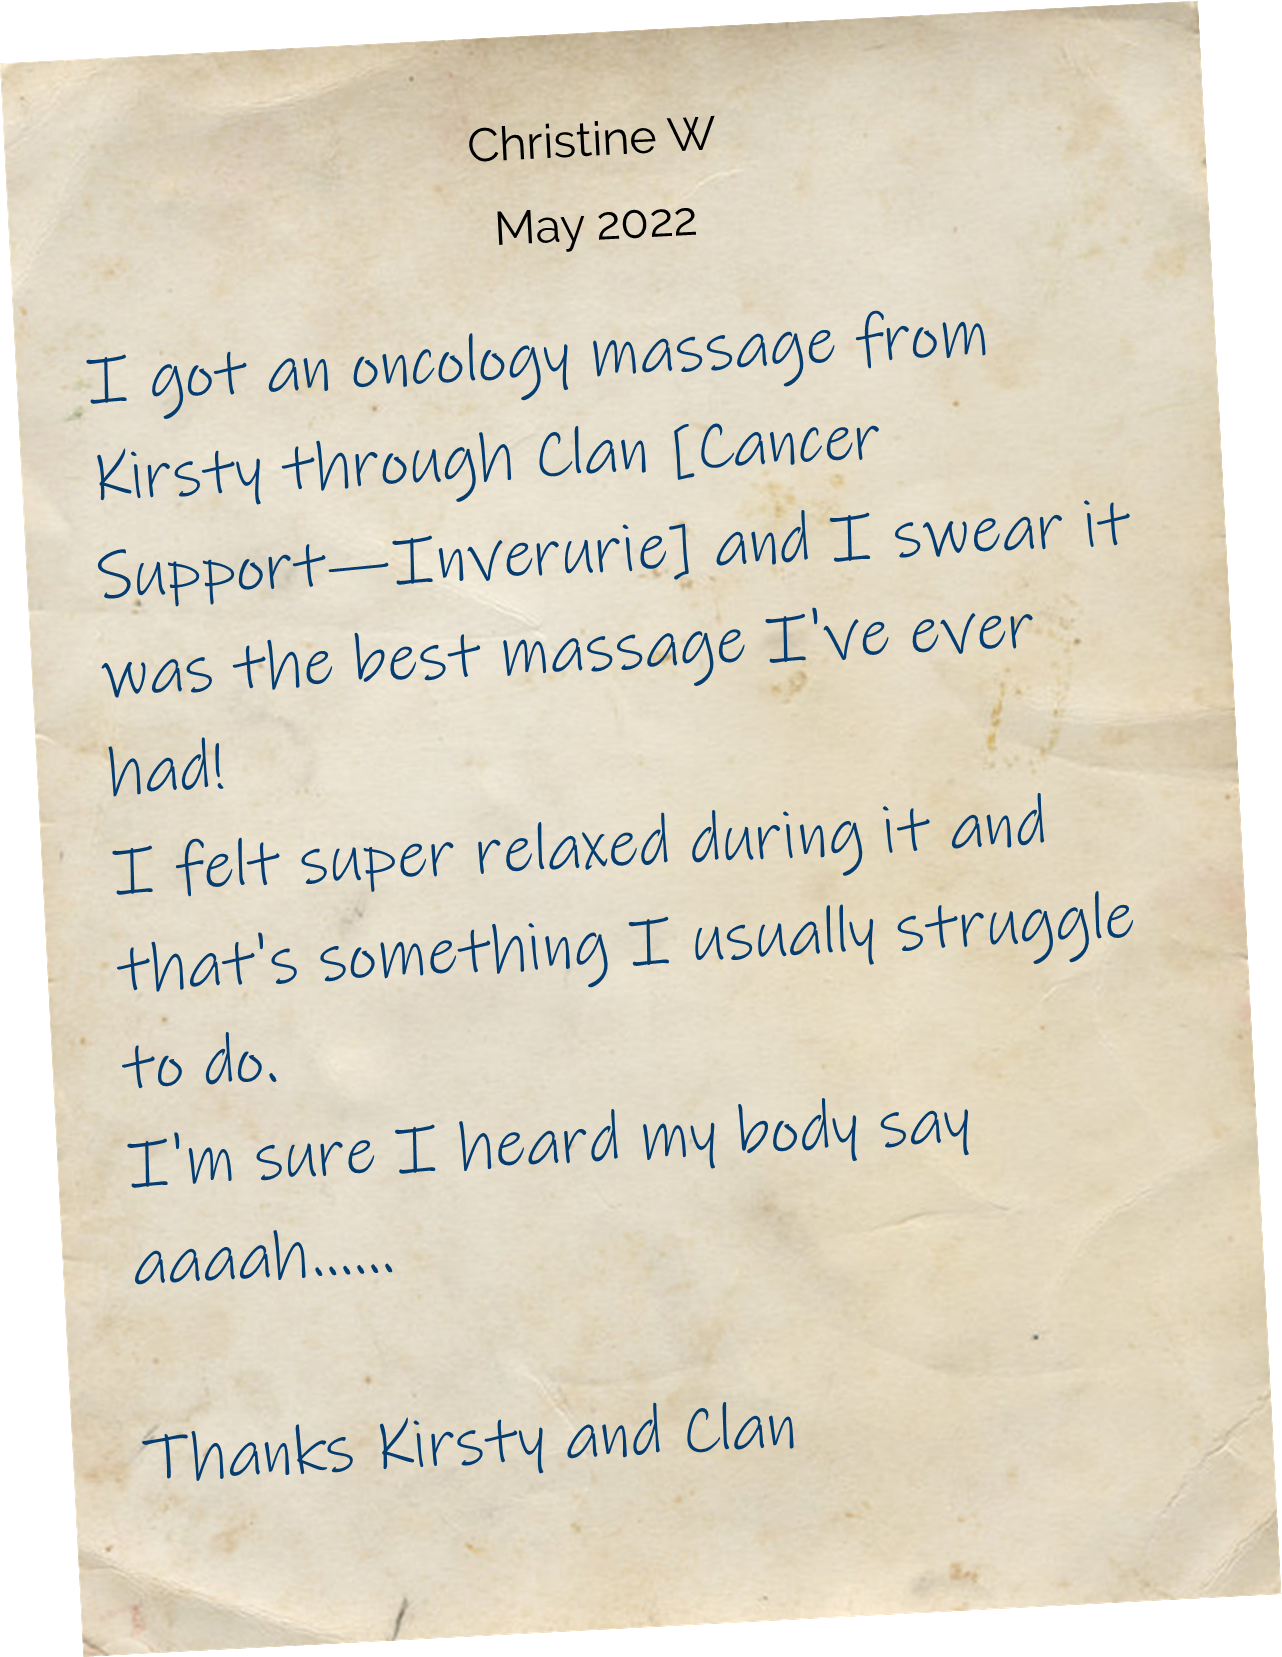 Christine W
May 2022
I got an oncology massage from
Kirsty through Clan [Cancer
Support—Inverurie] and I swear it
was the best massage I've ever
had!
I felt super relaxed during it and
that's something I usually struggle
to do.
I'm sure I heard my body say
aaaah......
Thanks Kirsty and Clan